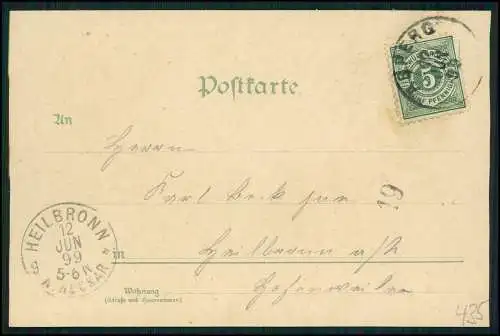 ASPERG
5
FÜNF PFENNIG
Postkarte
An
Herrn
Karl Beck jun
19
HEILBRONN
12
JUN
99
5-6 N
NECKAR
in Heilbronn a/N
Wohnung
(Straße und Hausnummer)
435